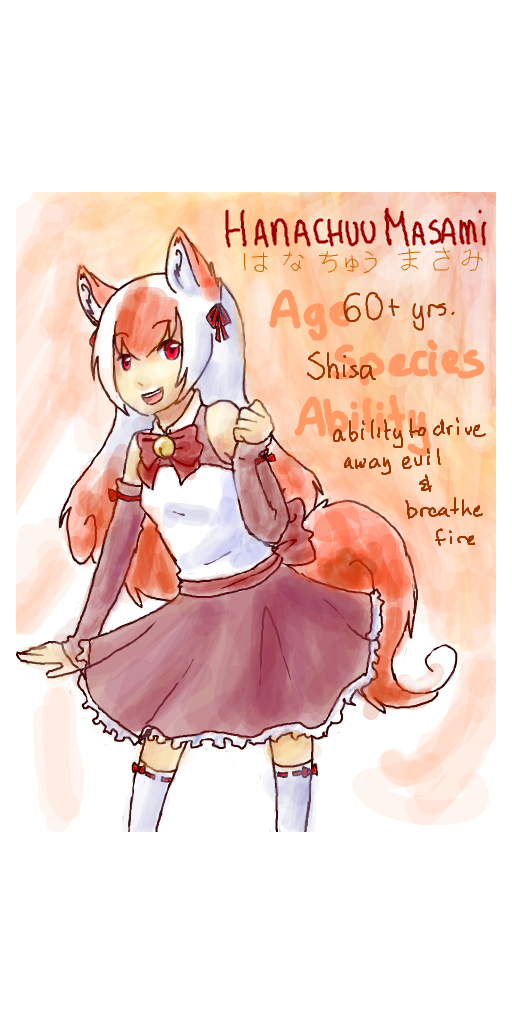 HANACHUU MASAMI
はなちゅう まさみ
Age 60+ yrs.
Species Shisa
Ability
ability to drive
away evil
&
breathe
fire